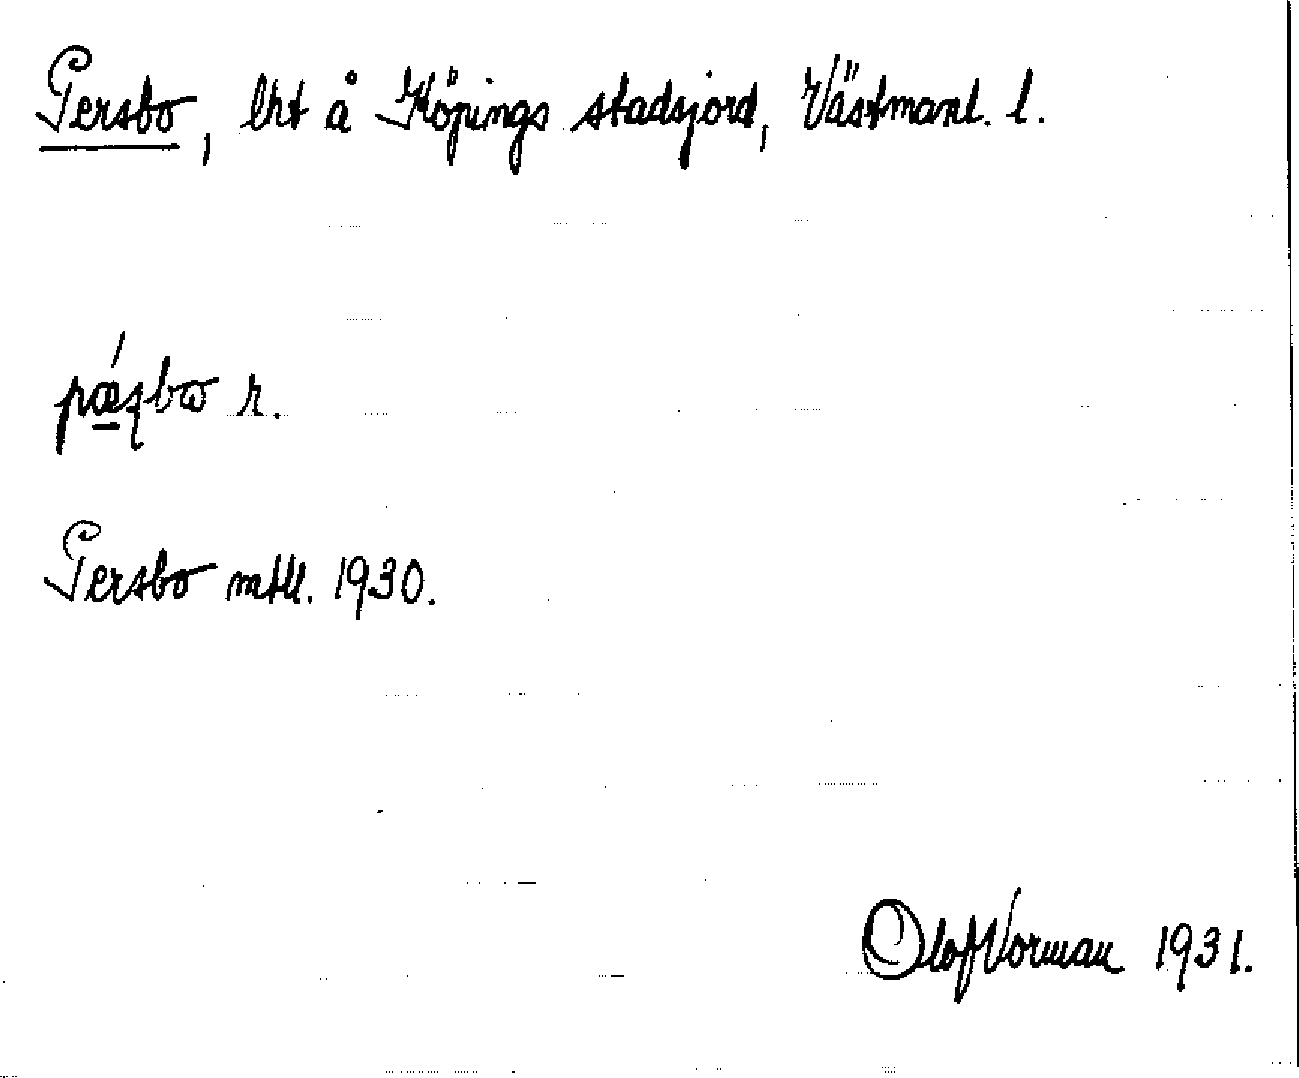 Persbo, lht å Köpings stadsjord, Västmanl. l.
Persbo mtll. 1930.
Olof Vorman 1931.